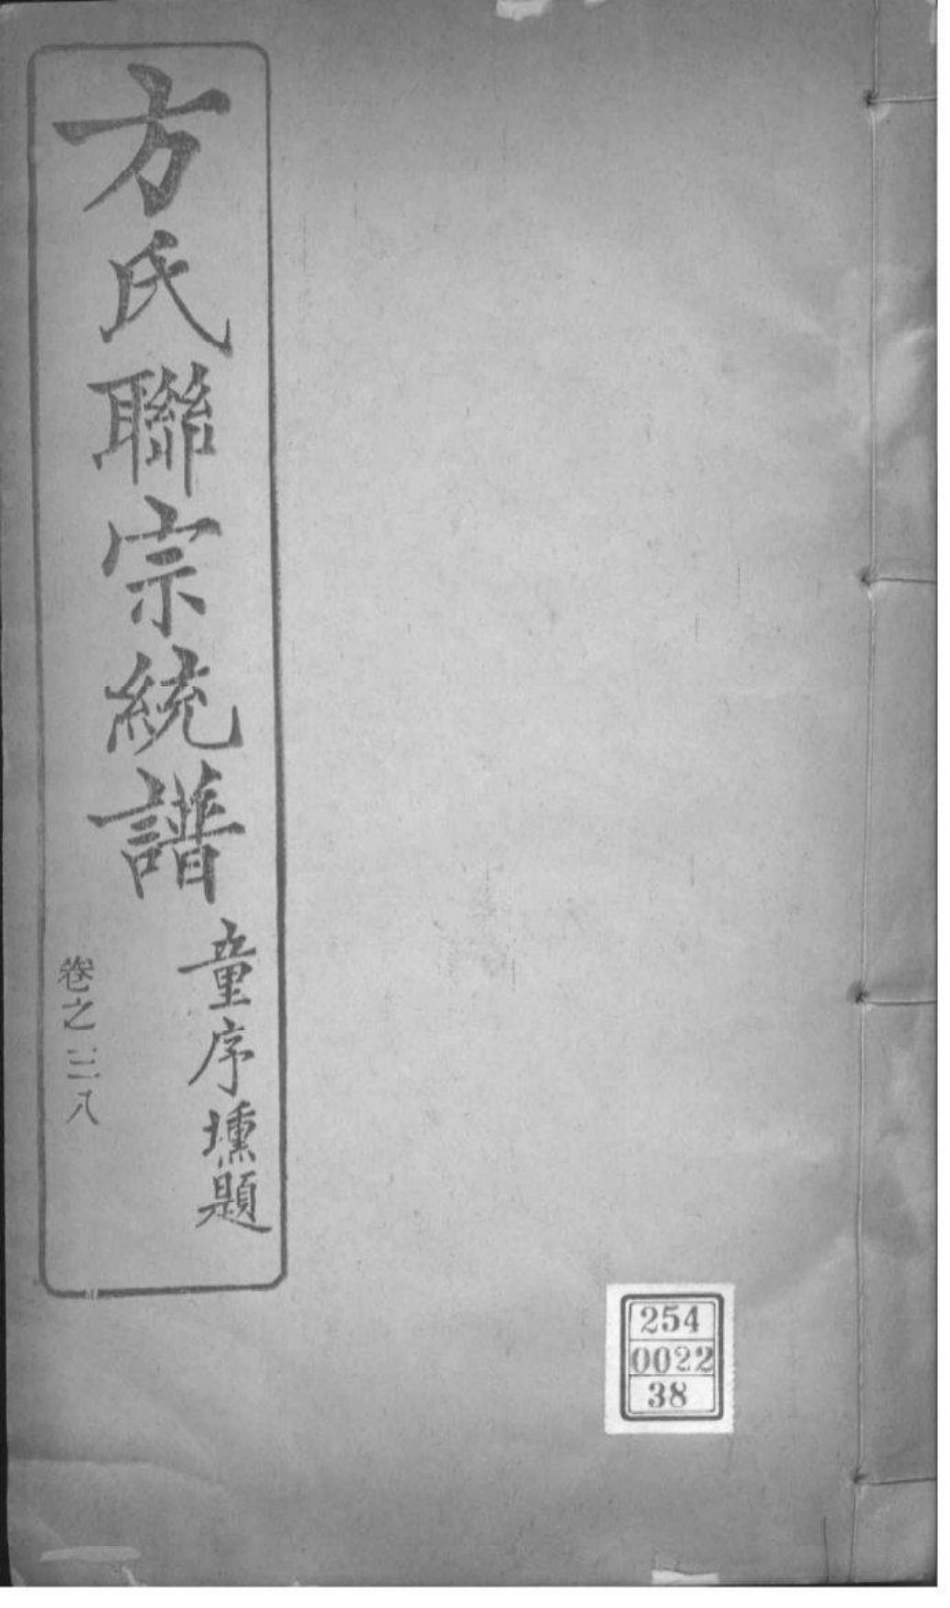 方氏聯宗統譜
童序壎題
卷之三八
254
0022
38